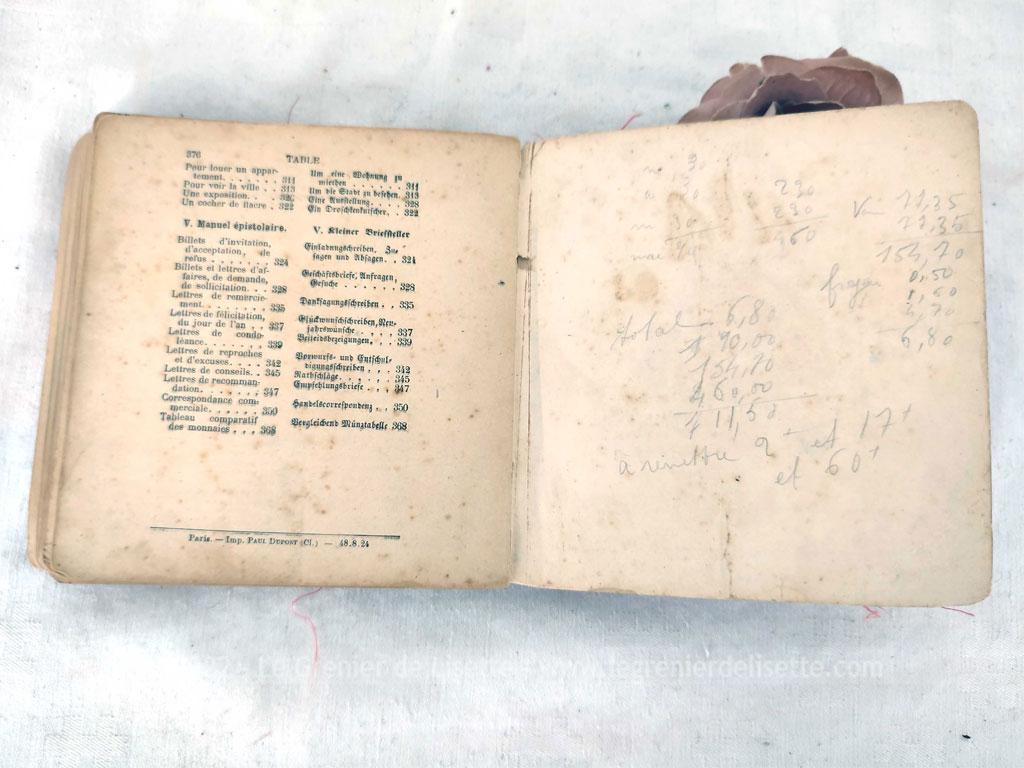 376 TABLE
Pour louer un appar-
tement . . . . . 311
Pour voir la ville . . 313
Une exposition . . . 326
Un cocher de fiacre . 322
V. Manuel épistolaire.
Billets d'invitation,
d'acceptation, de
refus . . . . . . . 324
Billets et lettres d'af-
faires, de demande,
de sollicitation . . . 328
Lettres de remercie-
ment . . . . . . . 335
Lettres de félicitation,
du jour de l'an . . 337
Lettres de condo-
léance . . . . . . . 339
Lettres de reproches
et d'excuses . . . . 342
Lettres de conseils . . 345
Lettres de recomman-
dation . . . . . . . 347
Correspondance com-
merciale . . . . . . 350
Tableau comparatif
des monnaies . . . 368
Um eine Wohnung zu
miethen . . . . . . 311
Um die Stadt zu besehen. 313
Eine Ausstellung . . . 328
Ein Droschkenkutscher . . 322
V. Kleiner Briefsteller
Einladungschreiben, Zu-
sagen und Absagen . . 324
Geschäftsbriefe, Anfragen,
Gesuche . . . . . . 328
Danksagungschreiben . . 335
Glückwunschschreiben, Neu-
jahrswünsche . . . . 337
Beileidsbezeigungen . . 339
Vorwurfs- und Entschul-
digungsschreiben . . . 342
Rathschläge . . . . . 345
Empfehlungsbriefe . . . 347
Handelscorrespondenz . . 350
Vergleichend Münztabelle 368
Paris. — Imp. PAUL DUPONT (Cl.) — 48.8.24
30
30
mai
230
230
460
154,70
0,50
6,80
total 6,80
90,00
154,70
460,00
711,50
à remettre 2 et 17
et 60
Le Grenier de Lisette - www.legrenierdelisette.com